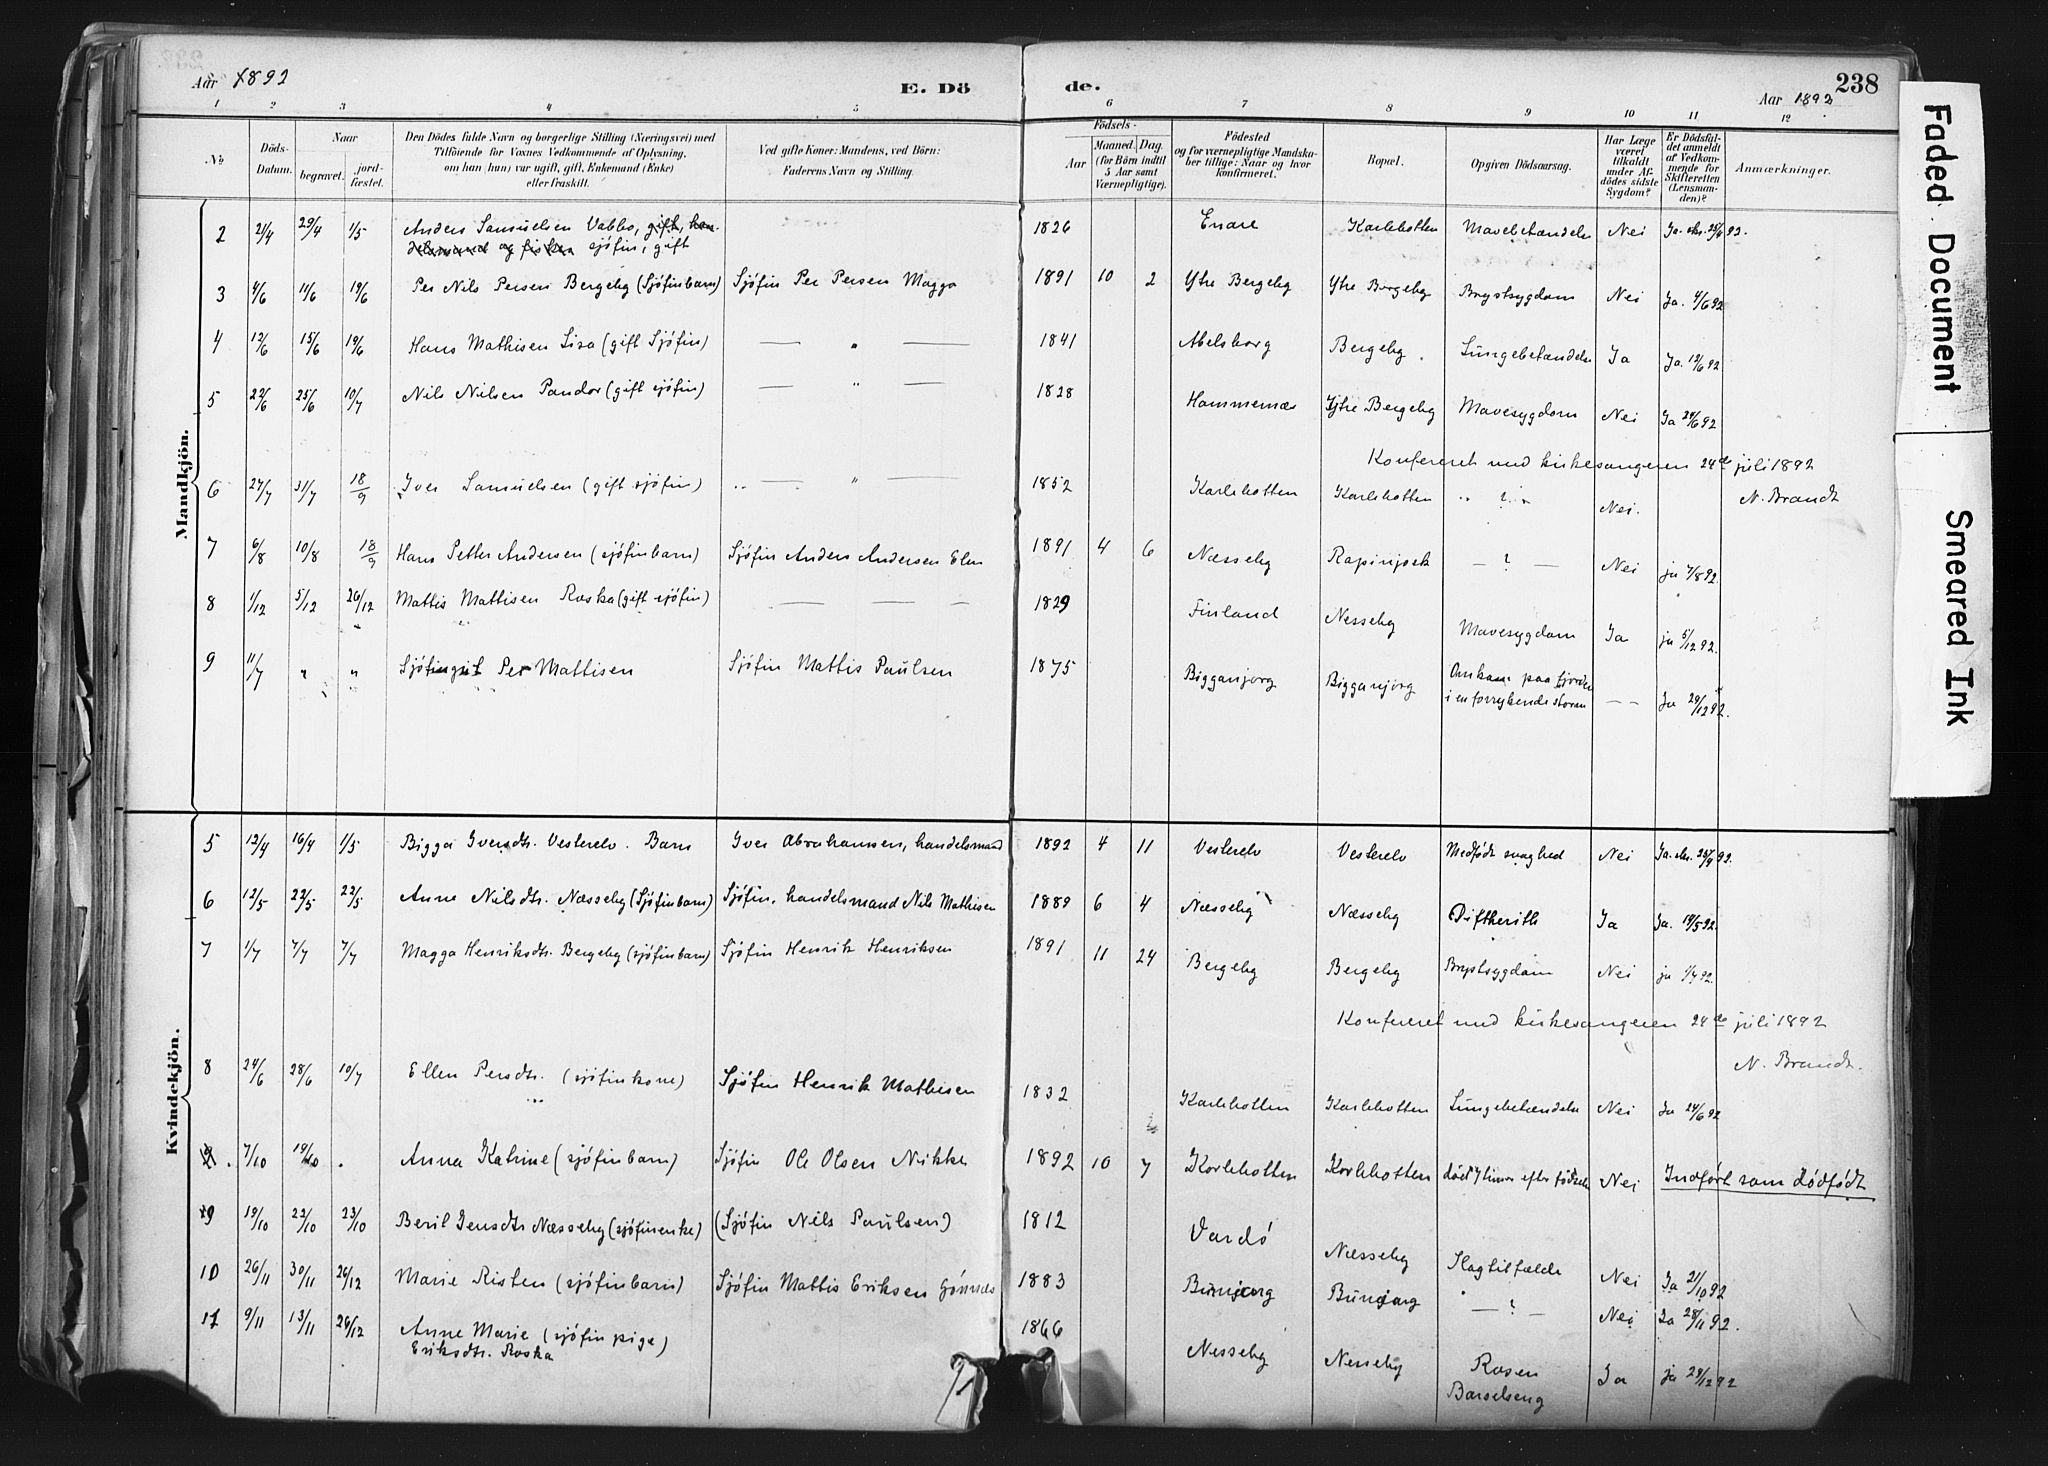 Aar 1892
E. Dö
de.
Aar 1892
238
1 2 3 4 5 6 7 8 9 10 11 12
No
Döds-Datum.
Naar
begravet.
jord-fæstet.
Den Dödes fulde Navn og borgerlige Stilling (Næringsvei) med
Tilföiende for Voxnes Vedkommende af Oplysning,
om han (hun) var ugift, gift, Enkemand (Enke)
eller fraskilt.
Ved gifte Koner: Mandens, ved Börn:
Faderens Navn og Stilling.
Födsels-
Aar
Maaned. Dag.
(for Börn indtil
5 Aar samt
Værnepligtige).
Födested
og for værnepligtige Mandska-
ber tillige: Naar og hvor
konfirmeret.
Bopæl.
Opgiven Dödsaarsag.
Har Læge
været
tilkaldt
under Af-
dödes sidste
Sygdom?
Er Dödsfal-
det anmeldt
af Vedkom-
mende for
Skifteretten
(Lensman-
den)?
Anmærkninger.
Mandkjön.
2 21/4 29/4 1/5 Anders Samuelsen Vabbo, gift, han- 1826 Enare Karlebotten Mavebetændelse Nei Ja
delsmand og fisker sjöfin, gift
3 4/6 11/6 19/6 Per Nils Persen Bergeby (Sjöfinbarn) Sjöfin Per Persen Magga 1891 10 2 Ytre Bergeby Ytre Bergeby Brystsygdom Nei Ja. 4/6 92
4 12/6 15/6 19/6 Hans Mathisen Lisa (gift Sjöfin) — " — 1841 Abelsborg Bergeby. Lungebetændelse Ja Ja. 12/6 92
5 22/6 25/6 10/7 Nils Nilsen Pandor (gift sjöfin) — " — 1828 Hammernæs Ytre Bergeby Mavesygdom Nei Ja 24/6 92
Konfereret med kirkesangeren 24de juli 1892
N. Brandt
6 27/7 31/7 18/9 Iver Samuelsen (gift sjöfin) — " — 1852 Karlebotten Karlebotten " ? " Nei.
7 6/8 10/8 18/9 Hans Petter Andersen (sjöfinbarn) Sjöfin Anders Andersen Elen 1891 4 6 Næsseby Rapinjock — ? — Nei ja 7/8 92.
8 1/12 5/12 26/12 Mattis Mattisen Roska (gift sjöfin) — — — 1829 Finland Nesseby Mavesygdom Ja ja 5/12 92.
9 11/7 " " Sjöfingut Per Mattisen Sjöfin Mattis Paulsen 1875 Bigganjorg Bigganjorg Omkom paa fjorden
i en forrykende storm — — Ja 29/12 92.
Kvindekjön.
5 12/4 16/4 1/5 Bigga Iversdtr. Vesterelv. Barn Iver Abrahamsen, handelsmand 1892 4 11 Vesterelv Vesterelv Medfödt svaghed Nei Ja
6 12/5 22/5 22/5 Anne Nilsdtr. Næsseby (Sjöfinbarn) Sjöfin, handelsmand Nils Mathisen 1889 6 4 Næsseby Næsseby Diftherith Ja Ja. 19/5 92.
7 1/7 7/7 7/7 Magga Henriksdtr. Bergeby (sjöfinbarn) Sjöfin Henrik Henriksen 1891 11 24 Bergeby Bergeby Brystsygdom Nei ja 1/7 92.
Konfereret med kirkesangeren 24de juli 1892
N. Brandt.
8 24/6 28/6 10/7 Ellen Persdtr. (sjöfinkone) Sjöfin Henrik Mathisen 1832 Karlebotten Karlebotten Lungebetændelse Nei Ja 24/6 92
9. 7/10 19/10 . Anna Katrine (sjöfinbarn) Sjöfin Ole Olsen Nikke 1892 10 7 Karlebotten Karlebotten död 7 timer efter födselen Nei Indfört som dödfödt
9 19/10 22/10 23/10 Beril Jensdtr Næsseby (sjöfinenke) (Sjöfin Nils Paulsen) 1812 Vardö Næsseby Slagtilfælde Nei Ja 21/10 92
10 26/11 30/11 26/12 Marie Risten (sjöfinbarn) Sjöfin Mattis Eriksen 1883 Bunjarg Bunjarg — ? — Nei Ja 28/11 92.
11 9/11 13/11 26/12 Anne Marie (sjöfin pige) 1866 Nesseby Nesseby Rosen Ja ja 29/12 92
Eriksdtr. Roska Barselseng
Faded Document
Smeared Ink